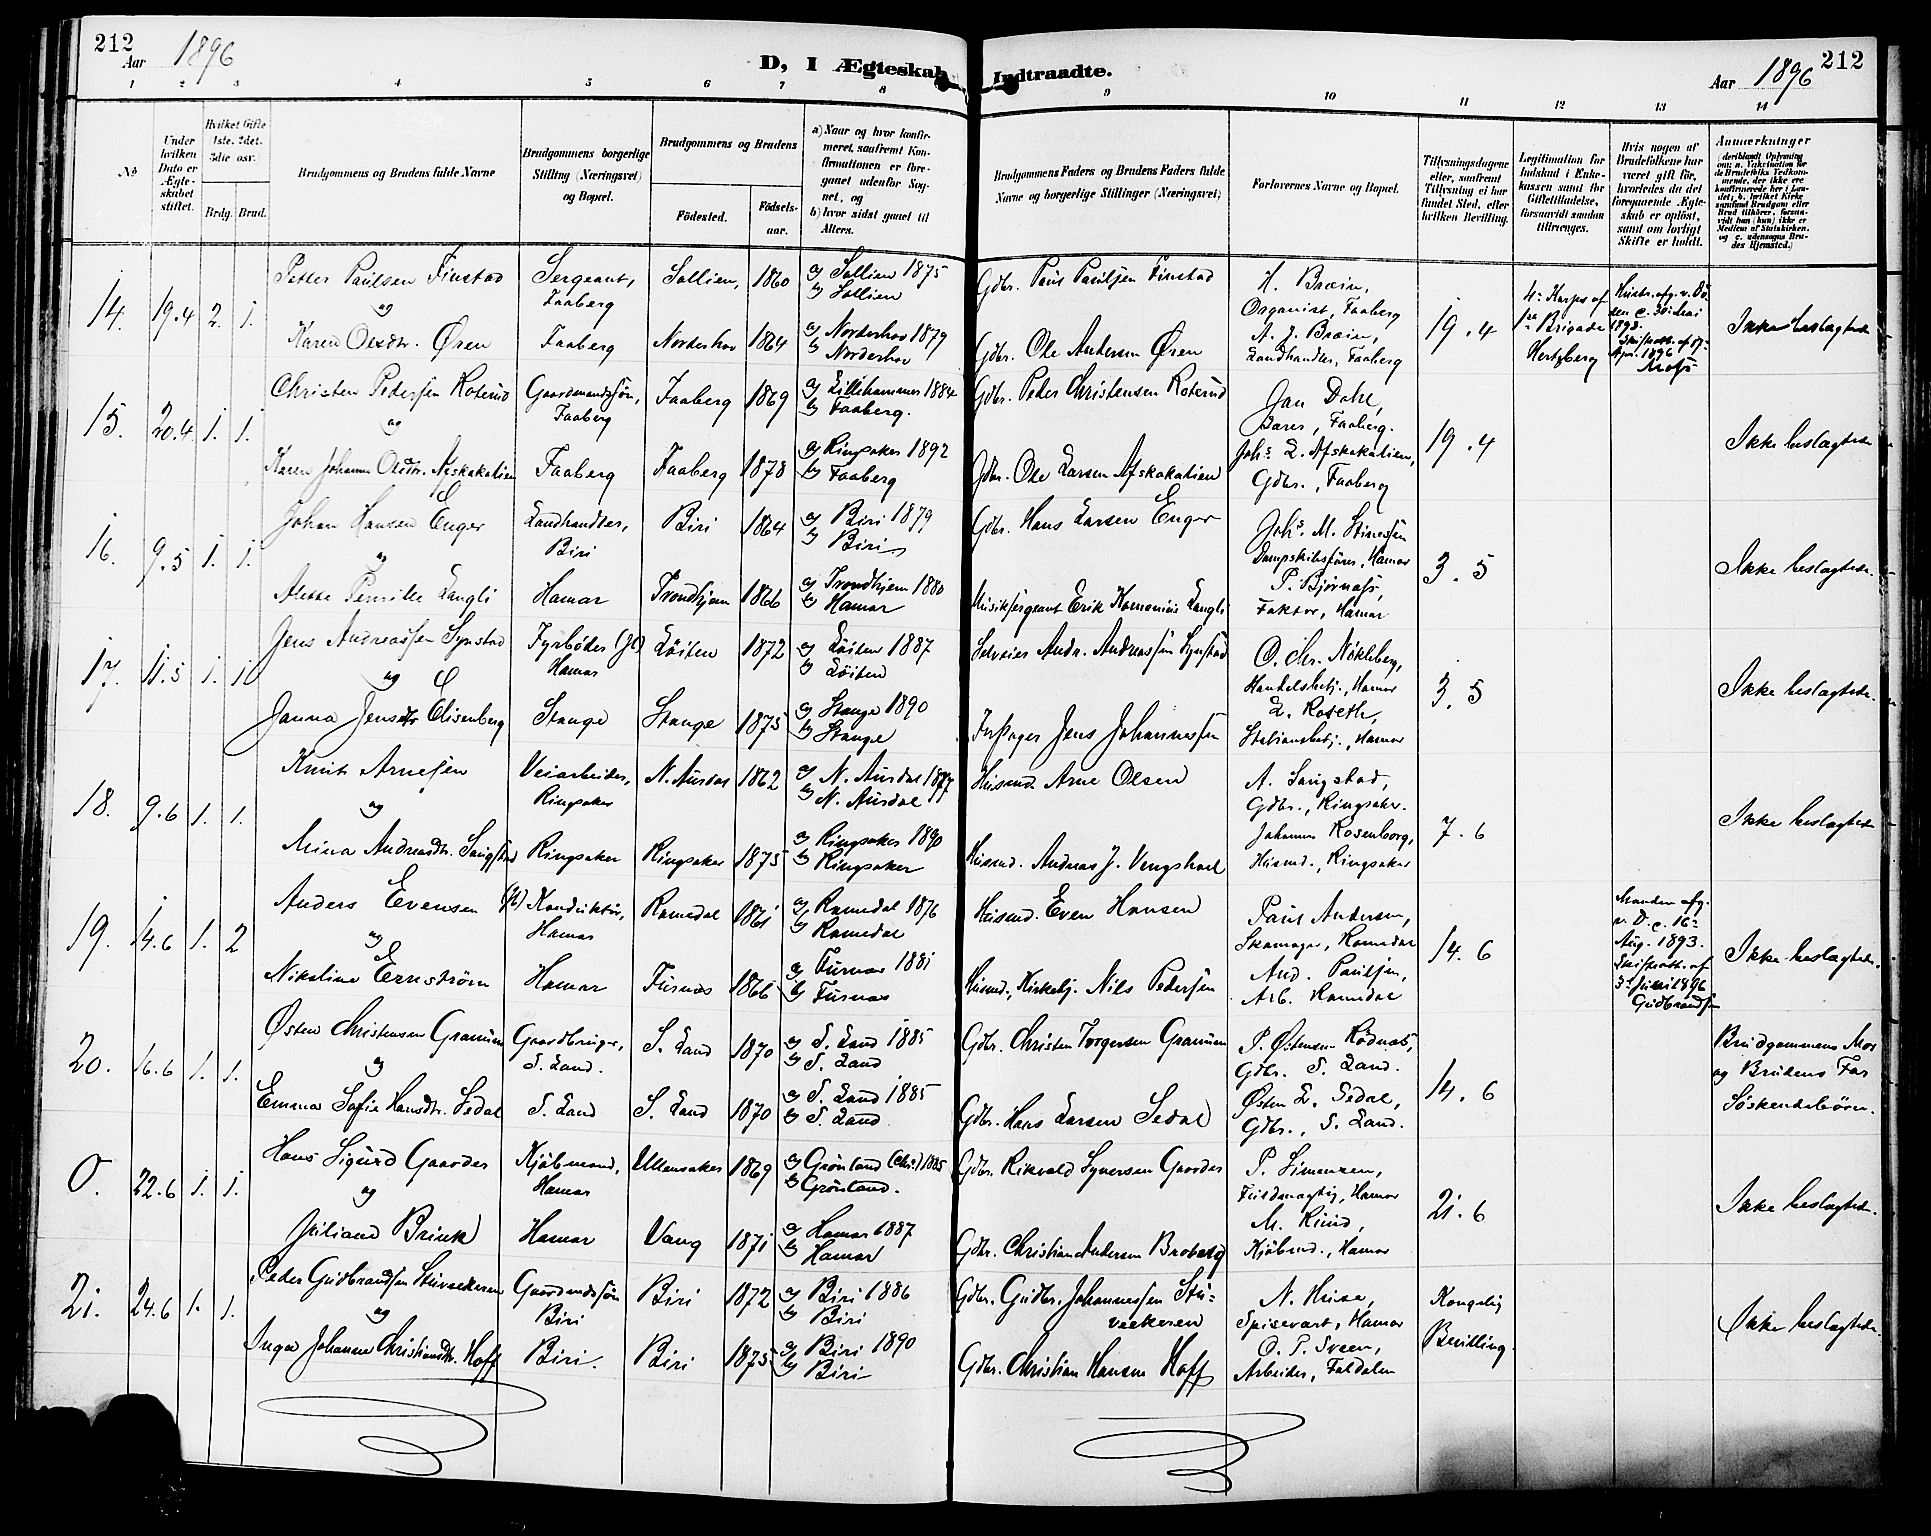 212
Aar 1896
D, I Ægteskab Indtraadte.
Aar 1896
212
1 2 3 4 5 6 7 8 9 10 11 12 13 14
No
Under hvilken Dato er Ægteskabet stiftet.
Hvilket Gifte 1ste, 2det, 3die osv.
Brdg. Brud.
Brudgommens og Brudens fulde Navne
Brudgommens borgerlige Stilling (Næringsvei) og Bopæl.
Brudgommens og Brudens
Fødested.
Fødselsaar.
a) Naar og hvor konfirmeret, saafremt Konfirmationen er foregaaet udenfor Sognet, og
b) hvor sidst gaaet til Alters.
Brudgommens Faders og Brudens Faders fulde Navne og borgerlige Stillinger (Næringsvei)
Forlovernes Navne og Bopæl.
Tillysningsdagene eller, saafremt Tillysning ei har fundet Sted, efter hvilken Bevilling.
Legitimation for Indskud i Enkekassen samt for Giftetilladelse, forsaavidt saadan tiltrænges.
Hvis nogen af Brudefolkene har været gift før, hvorledes da det foregaaende Ægteskab er opløst, samt om lovligt Skifte er holdt.
Anmærkninger
14. 19.4 2. 1.
Petter Paulsen Finstad
og
Karen Olsdtr. Øren
Sergeant,
Faaberg
Faaberg
Sollien, 1860
Norderhov 1864
a) Sollien 1875
b) Sollien
a) Norderhov 1879
b) Norderhov
Gdbr. Paul Paulsen Finstad
Gdbr. Ole Andersen Øren
H. Bræin,
Organist, Faaberg
A. E. Bræin,
Landhandler, Faaberg
19.4
Brigade
Hertzberg
Ikke beslægtede
15. 20.4 1. 1.
Christen Pedersen Roterud
og
Karen Johanne Olsdtr. Afskakatien
Gaardmandssøn,
Faaberg
Faaberg
Faaberg 1869
Faaberg 1873
a) Lillehammer 1884
b) Faaberg.
a) Ringsaker 1892
b) Faaberg
Gdbr. Peder Christensen Roterud
Gdbr. Ole Larsen Afskakatien
Jan Dahl,
Faaberg.
Johs. L. Afskakatien,
Gdbr., Faaberg
19.4
Ikke beslægtede
16. 9.5 1. 1.
Johan Hansen Enger
og
Alette Pernille Langli
Landhandler,
Biri
Hamar
Biri 1864
Trondhjem 1866
a) Biri 1879
b) Biri
a) Trondhjem 1880
b) Hamar
Gdbr. Hans Larsen Enger
Musiksergeant Erik Langli
Johs. M. Stinessen
Dampskibsfører, Hamar
P. Bjørnass,
Faktor, Hamar
3.5
Ikke beslægtede.
17. 11.5 1. 1
Jens Andreassen Synstad
og
Janna Jensdtr Elisenberg
Fyrbøder (Jb)
Hamar
Stange
Løiten 1872
Stange 1875
a) Løiten 1887
b) Løiten
a) Stange 1890
b) Stange
Selveier Andr. Andreassen Synstad
Inspager Jens Johannessen
O. Chr. Nøkleberg,
Handelsbetj., Hamar
L. Roseth,
Stationsbetj., Hamar
3.5
Ikke beslægtede.
18. 9.6 1. 1.
Knut Arnesen
og
Mina Andreasdtr. Sangstad
Veiarbeider,
Ringsaker
Ringsaker
N. Aurdal 1862
Ringsaker 1875
a) N. Aurdal 1877
b) N. Aurdal
a) Ringsaker 1890
b) Ringsaker
Husmd. Arne Olsen
Husmd. Andreas J. Vengshoel
A. Sangstad,
Gdbr., Ringsaker.
Johannes Rosenborg,
Husmd., Ringsaker
7.6
Ikke beslægtede
19. 14.6 1. 2
Anders Evensen
og
Nikoline Ernstrøm
Konduktør,
Hamar
Hamar
Romedal 1861
Furnes 1866
a) Romedal 1876
b) Romedal
a) Furnæs 1881
b) Furnæs
Husmd. Even Hansen
Husmd., Kirkebj. Nils Pedersen
Paul Andersen,
Skomager, Romedal
And. Paulsen,
Arb. Romedal
14.6
Manden afg.
v. D. c. 16de
Aug. 1893.
Skifteatt. af
3de Juni 1896
Gudbrandsen
Ikke beslægtede.
20. 16.6 1. 1.
Østen Christensen Granum
og
Emma Sofie Hansdtr. Sedal
Gaardbruger,
S. Land.
S. Land
S. Land 1870
S. Land 1870
a) S. Land 1885
b) S. Land
a) S. Land 1885
b) S. Land
Gdbr. Christen Torgersen Granum
Gdbr. Hans Larsen Sedal
P. Østensen Rødnæs,
Gdbr. S. Land.
Østen L. Sedal,
Gdbr., S. Land.
14.6
Brudgommens Mor
og Brudens Far
Søskendebørn.
0. 22.6 1. 1.
Hans Sigurd Gaarder
og
Juliane Brink
Kjøbmand,
Hamar
Hamar
Ullensaker 1869
Vang 1871
a) Grønland (Chr.) 1885
b) Grønland.
a) Hamar 1887
b) Hamar
Gdbr. Rikvald Syversen Gaarder
Gdbr. Christian Andersen Broberg
P. Simensen,
Fuldmægtig, Hamar
M. Rund,
Kjøbmd., Hamar
21.6
Ikke beslægtede.
21. 24.6 1. 1.
Peder Gudbrandsen Stuveekeren
og
Inga Johanne Christiansdtr. Hoff
Gaardmandssøn
Biri
Biri.
Biri 1872
Biri 1875
a) Biri 1886
b) Biri
a) Biri 1890
b) Biri
Gdbr. Gudbr. Johannessen Stu-
veekeren
Gdbr. Christian Hansen Hoff
N. Huse,
Spisevært, Hamar
O. P. Sveen,
Arbeider, Faldalen
Kongelig
Bevilling.
Ikke beslægtede.